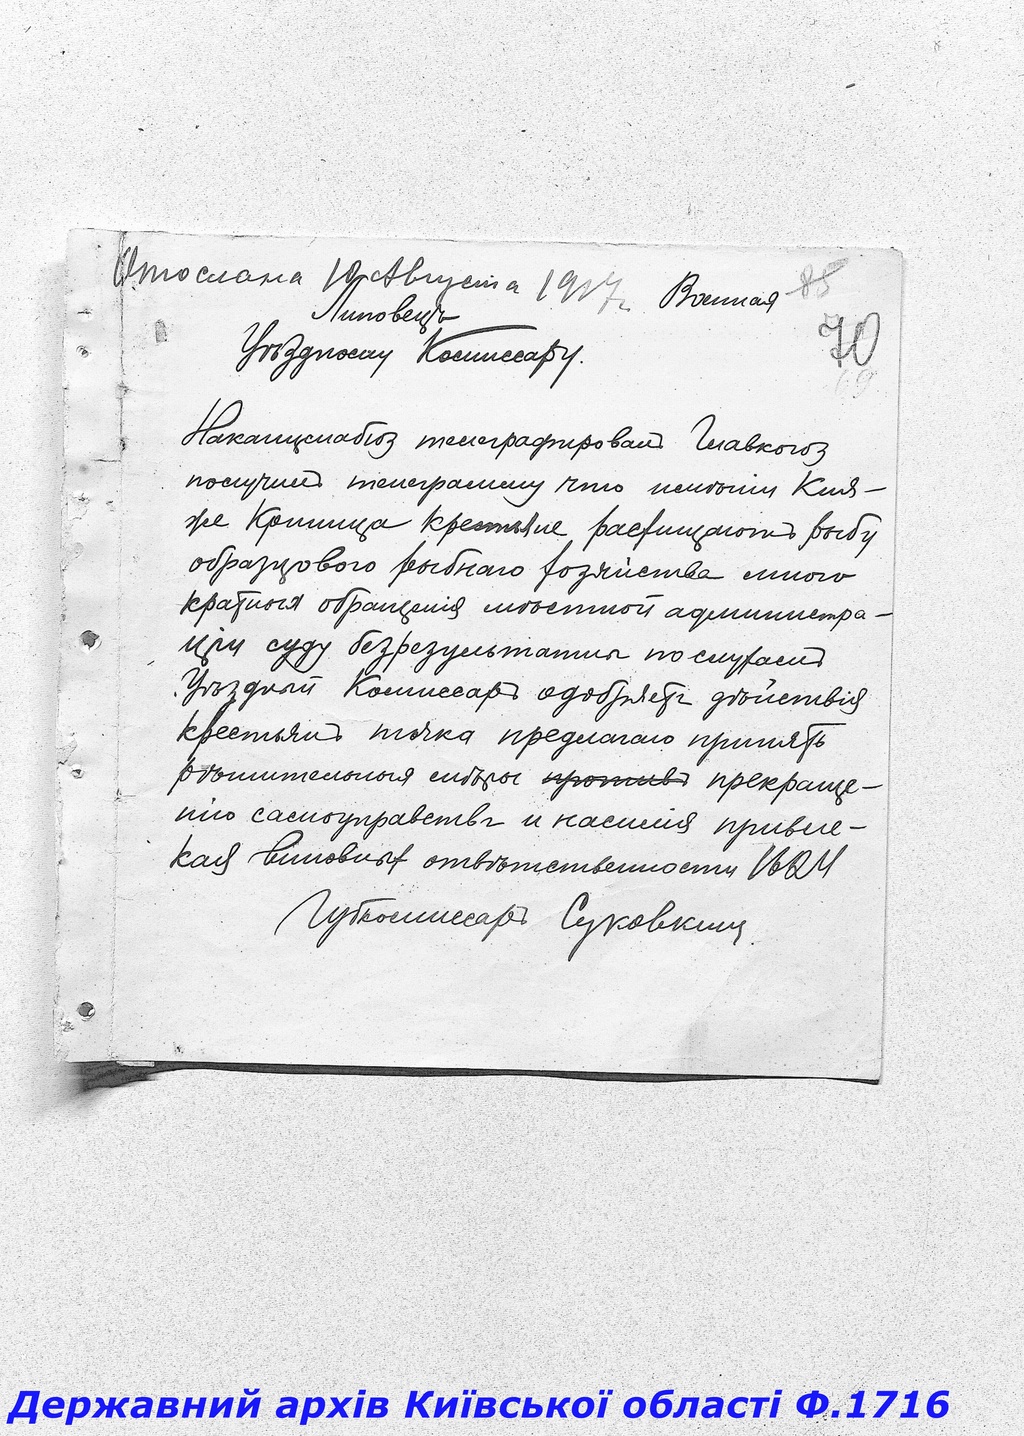 Отослана 10 Августа 1917 г. Военная 85
Липовецъ 70
Уѣздному Комиссару. 69
Накацснабюз телеграфировалъ Главкоюз
получилъ телеграмму что имѣнiи Кня-
же Криница крестьяне расхищаютъ рыбу
образцового рыбнаго хозяйства много
кратныя обращенiя мѣстной администра-
цiи суду безрезультатны по слухамъ
Уѣздный Комиссаръ одобряетъ дѣйствiя
крестьянъ точка предлагаю принять
рѣшительныя мѣры противъ прекраще-
нiю самоуправства и насилiя привле-
кая виновных отвѣтственности 1624
Губкомиссаръ Суковкинъ
Державний архів Київської області Ф.1716